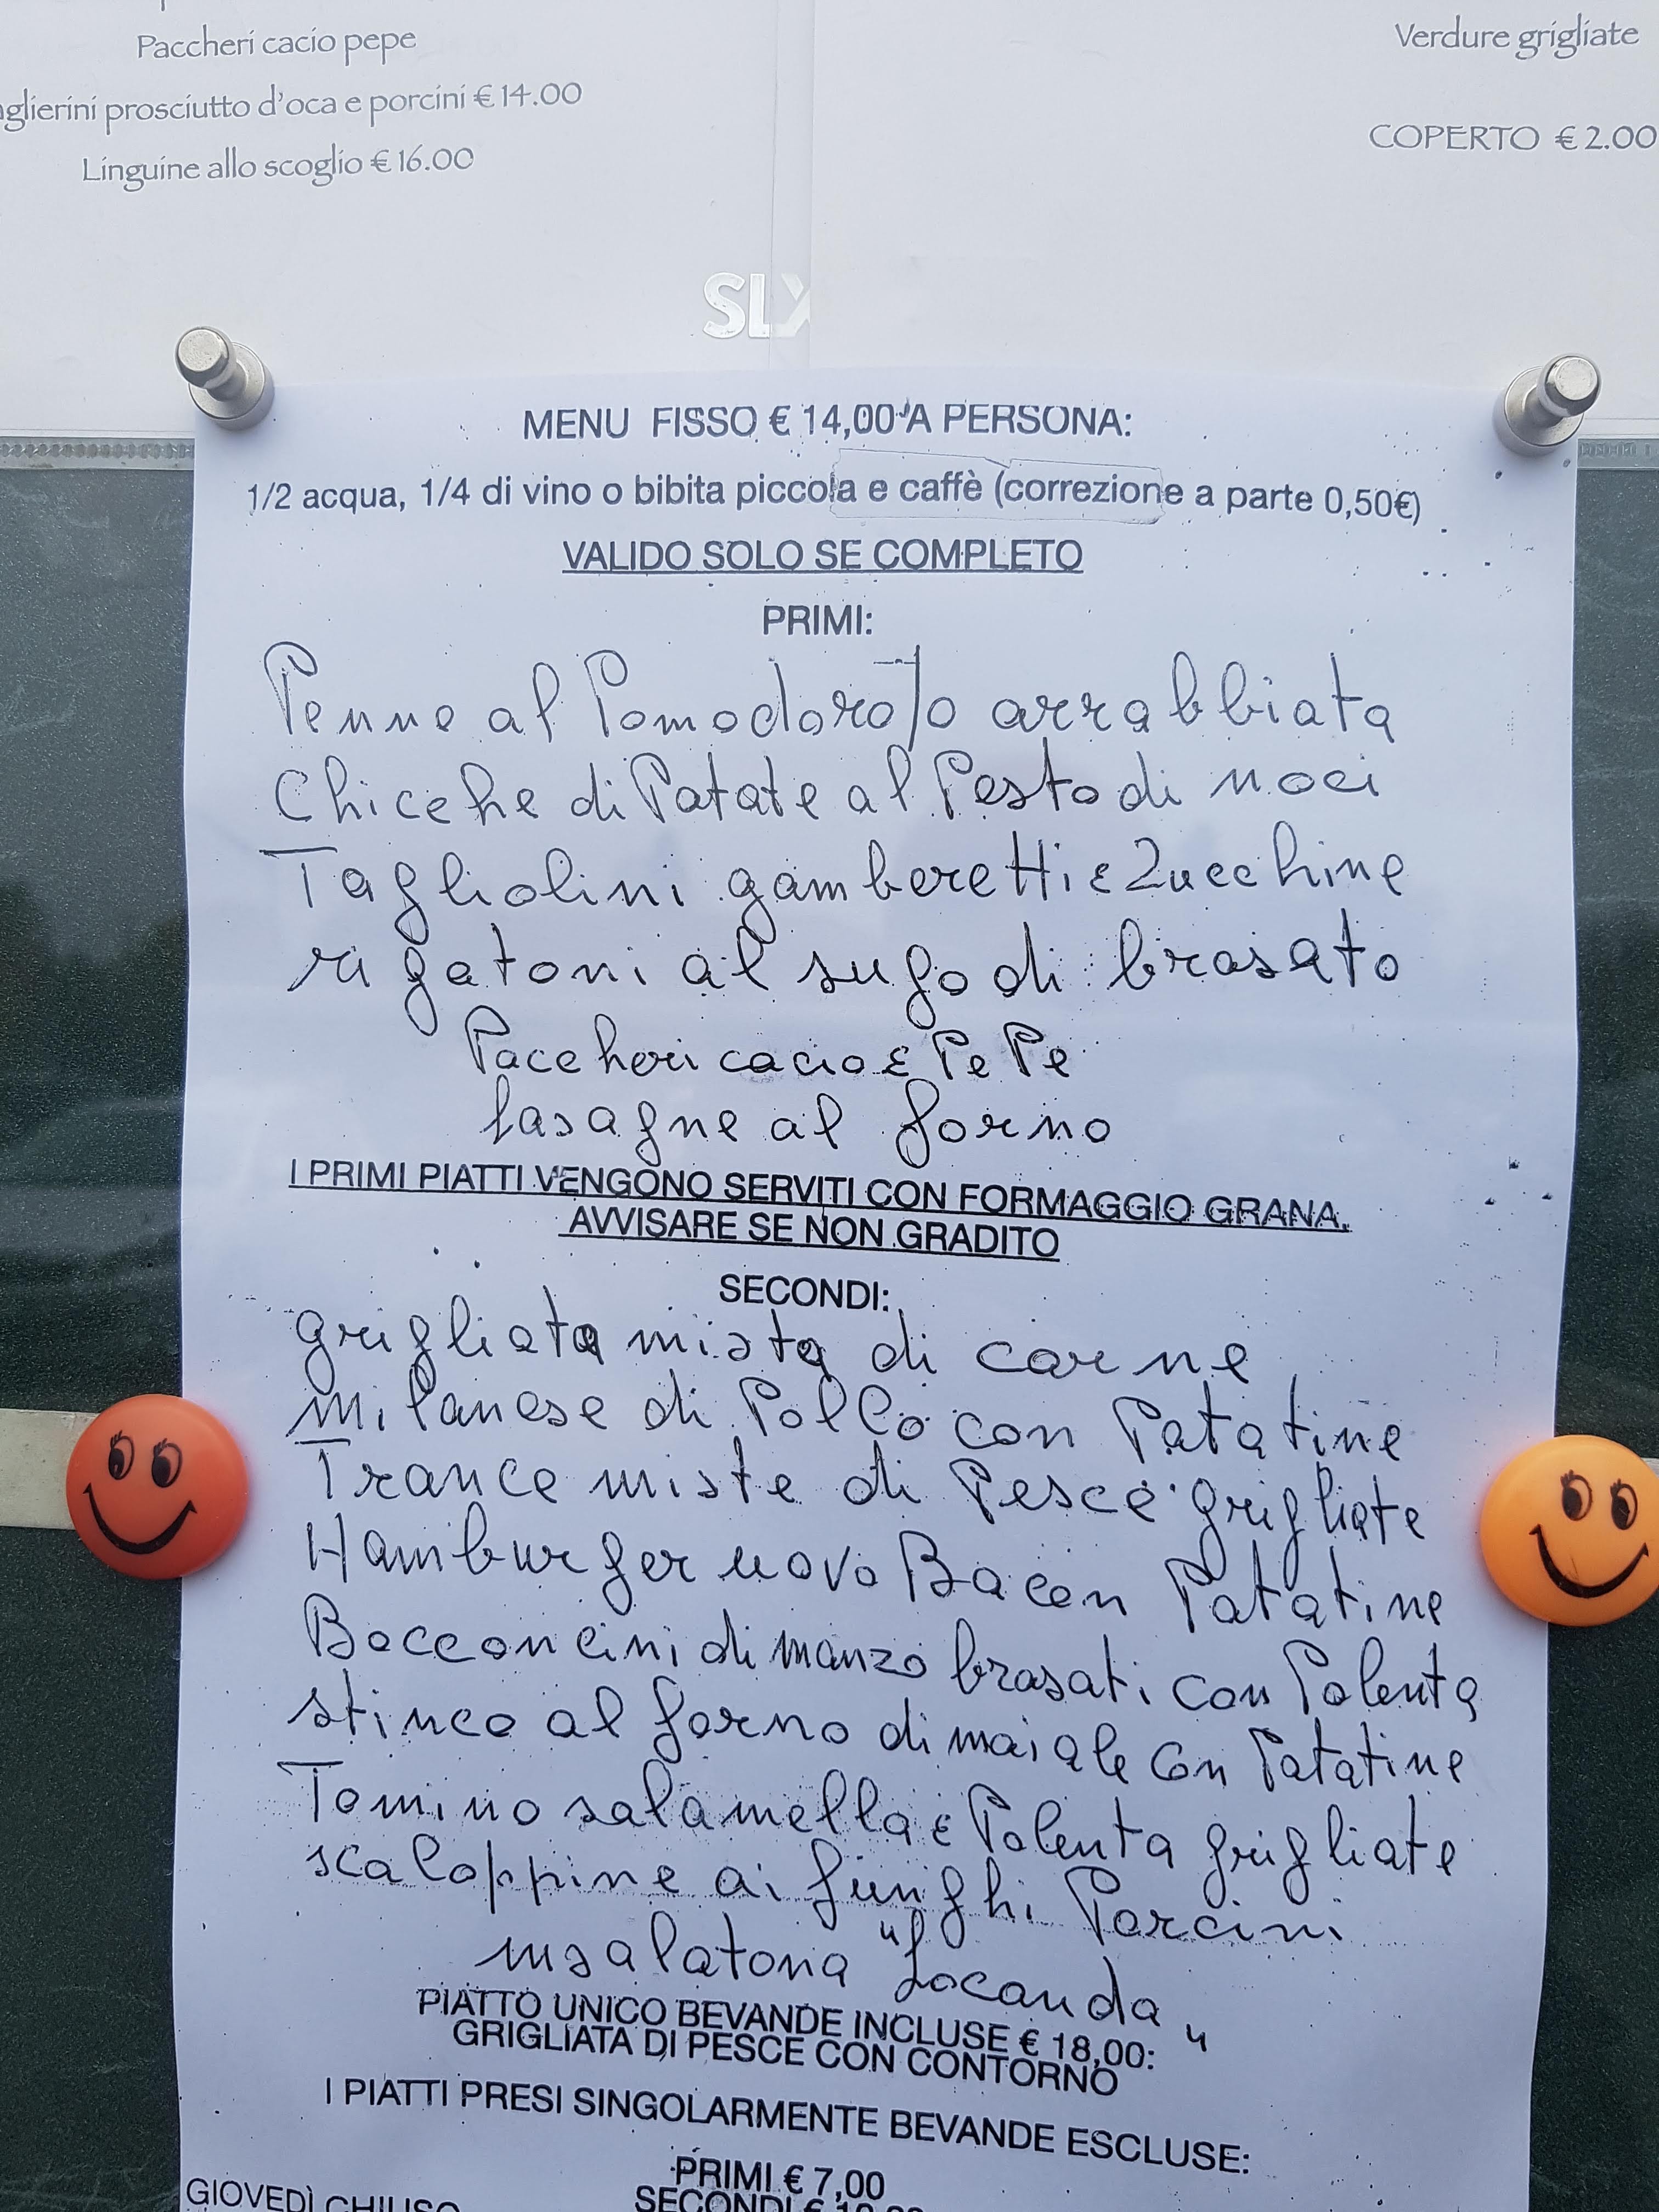 Paccheri cacio pepe
prosciutto d'oca e porcini € 14.00
Linguine allo scoglio € 16.00
Verdure grigliate
COPERTO € 2.00
SLX
MENU FISSO € 14,00 A PERSONA:
1/2 acqua, 1/4 di vino o bibita piccola e caffè (correzione a parte 0,50€)
VALIDO SOLO SE COMPLETO
PRIMI:
Penne al Pomodoro/o arrabbiata
Chicche di Patate al Pesto di noci
Tagliolini gamberetti e Zucchine
rigatoni al sugo di brasato
Paccheri cacio e PePe
lasagne al forno
I PRIMI PIATTI VENGONO SERVITI CON FORMAGGIO GRANA.
AVVISARE SE NON GRADITO
SECONDI:
grigliata mista di carne
milanese di Pollo con Patatine
Trance miste di Pesce grigliate
Hamburger uovo Bacon Patatine
Bocconcini di manzo brasati con Polenta
stinco al forno di maiale con Patatine
Tomino salamella e Polenta grigliate
scaloppine ai funghi Porcini
insalatona "Locanda"
PIATTO UNICO BEVANDE INCLUSE € 18,00:
GRIGLIATA DI PESCE CON CONTORNO
I PIATTI PRESI SINGOLARMENTE BEVANDE ESCLUSE:
PRIMI € 7,00
GIOVEDÌ CHIUSO
SECONDI €